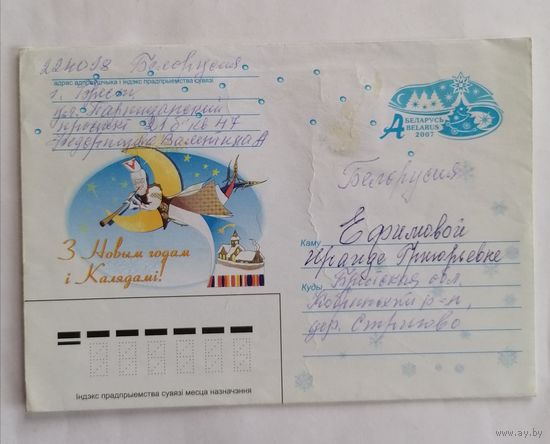 224018 Беларусия
адрас адпраўшчыка і індэкс прадпрыемства сувязі
г. Брест
Партизанский
проспект 21б кв 47
Валентина А
З Новым годам
і Калядамі!
А
БЕЛАРУСЬ
BELARUS
2007
Белорусия
Каму Ефимовой
Ираиде Григорьевне
Куды Брестская обл.
Кобринский р-н,
дер. Стригово
Індэкс прадпрыемства сувязі месца назначэння
www.ay.by